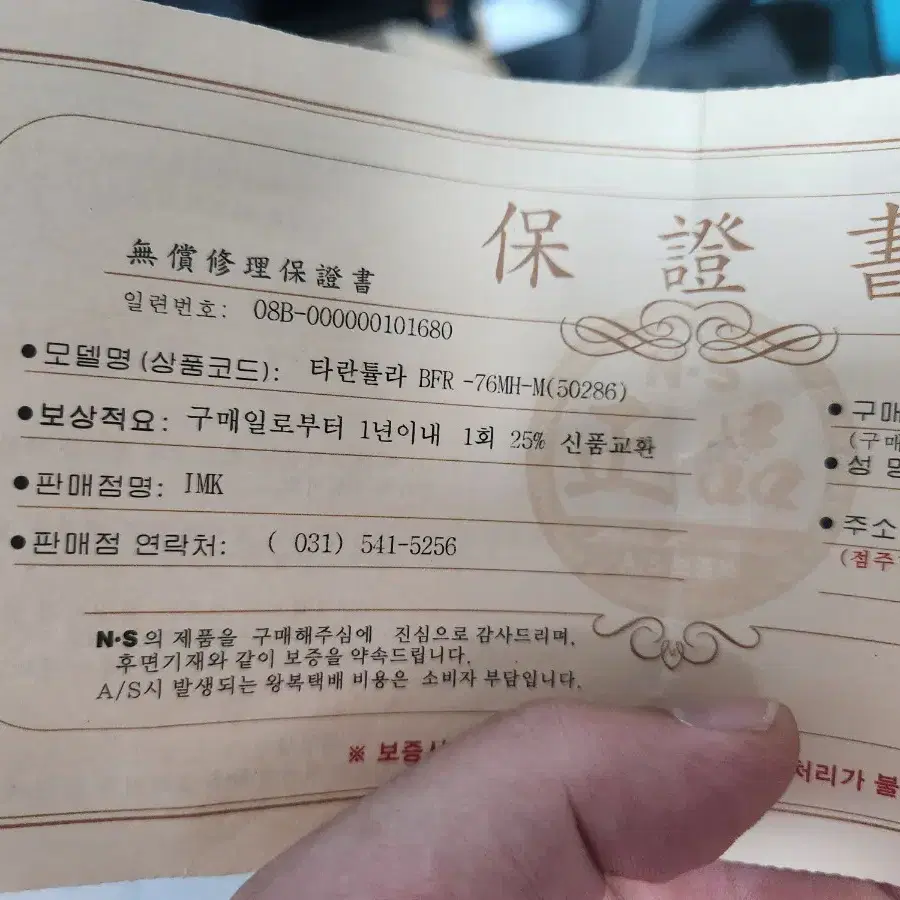 保證書
無償修理保證書
일련번호: 08B-000000101680
●모델명(상품코드): 타란튤라 BFR -76MH-M(50286)
●보상적요: 구매일로부터 1년이내 1회 25% 신품교환
●판매점명: IMK
●판매점 연락처: ( 031) 541-5256
N·S의 제품을 구매해주심에 진심으로 감사드리며,
후면기재와 같이 보증을 약속드립니다.
A/S시 발생되는 왕복택배 비용은 소비자 부담입니다.
●구매
(구매
●성명
●주소
(점주
N·S
正品
※ 보증 처리가 불